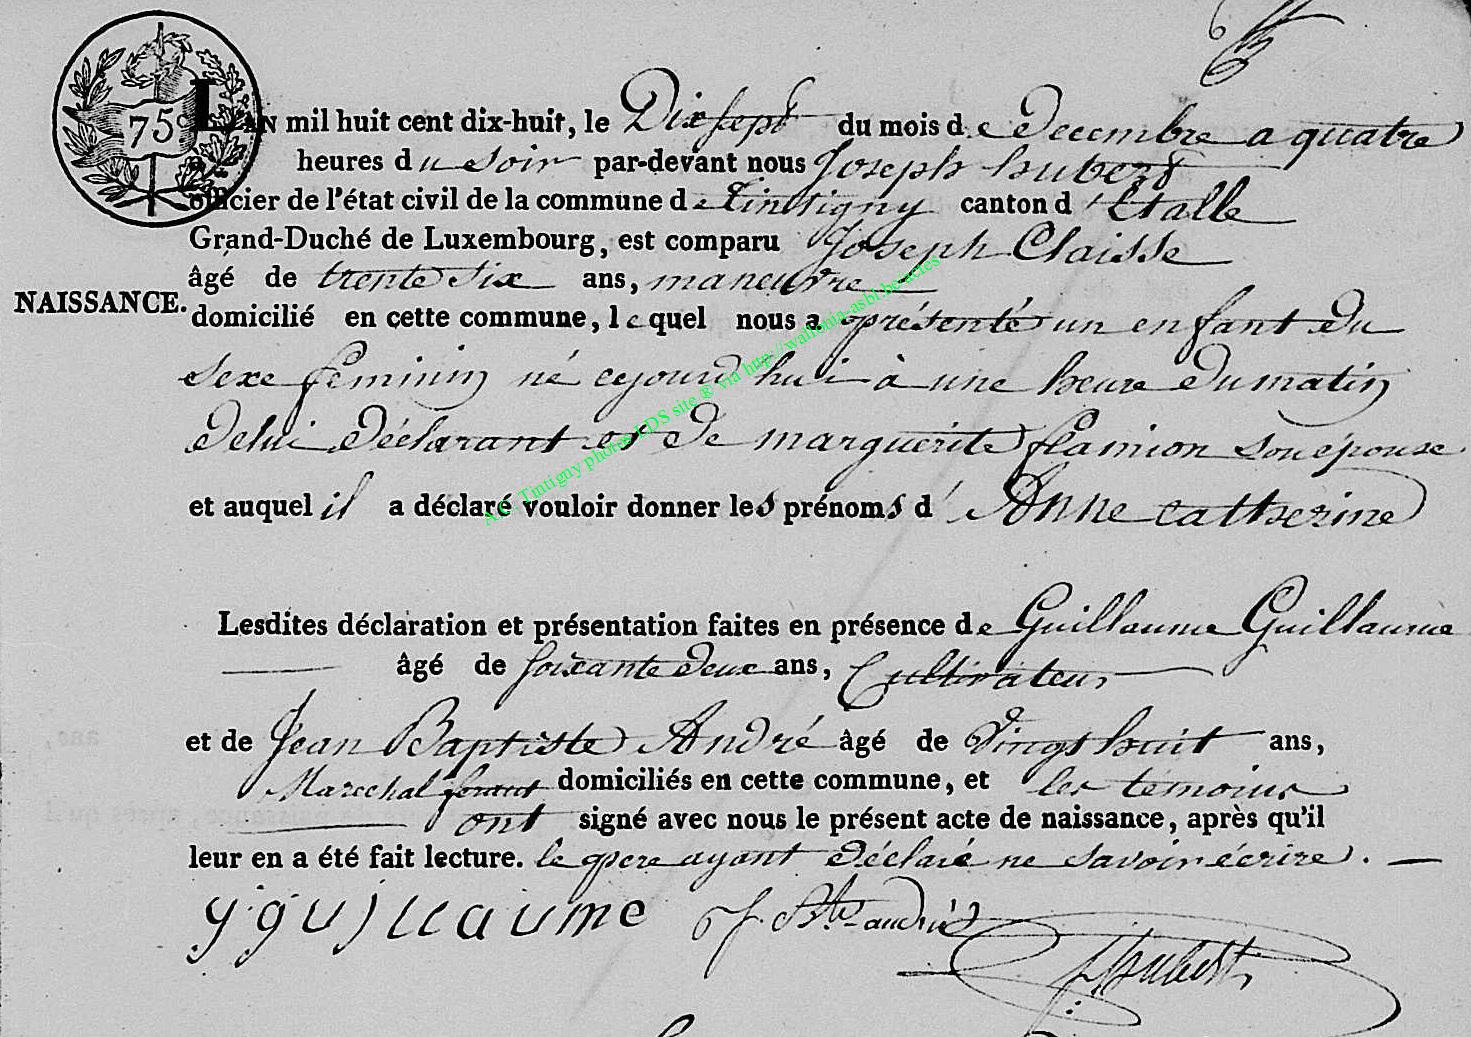 75c
L'AN mil huit cent dix-huit, le Dix sept du mois de decembre a quatre
heures du soir par-devant nous Joseph hubert
officier de l'état civil de la commune de tintigny canton d'Etalle
Grand-Duché de Luxembourg, est comparu Joseph Claisse
âgé de trente six ans, maneuvre
NAISSANCE.
domicilié en cette commune, lequel nous a présenté un enfant du
sexe feminin né cejourd'hui à une heure du matin
de lui déclarant et de marguerite flamion son épouse
et auquel il a déclaré vouloir donner les prénoms d'Anne catherine
Lesdites déclaration et présentation faites en présence de Guillaume Guillaume
âgé de soixante deux ans, Cultivateur
et de Jean Baptiste André âgé de Vingt huit ans,
Marechal ferant domiciliés en cette commune, et les témoins
ont signé avec nous le présent acte de naissance, après qu'il
leur en a été fait lecture. le pere ayant déclaré ne savoir écrire.
g guillaume J. Bte andré
J hubert
A.C. Tintigny photos LDS site ® via http://wallonia-asbl.be/actes